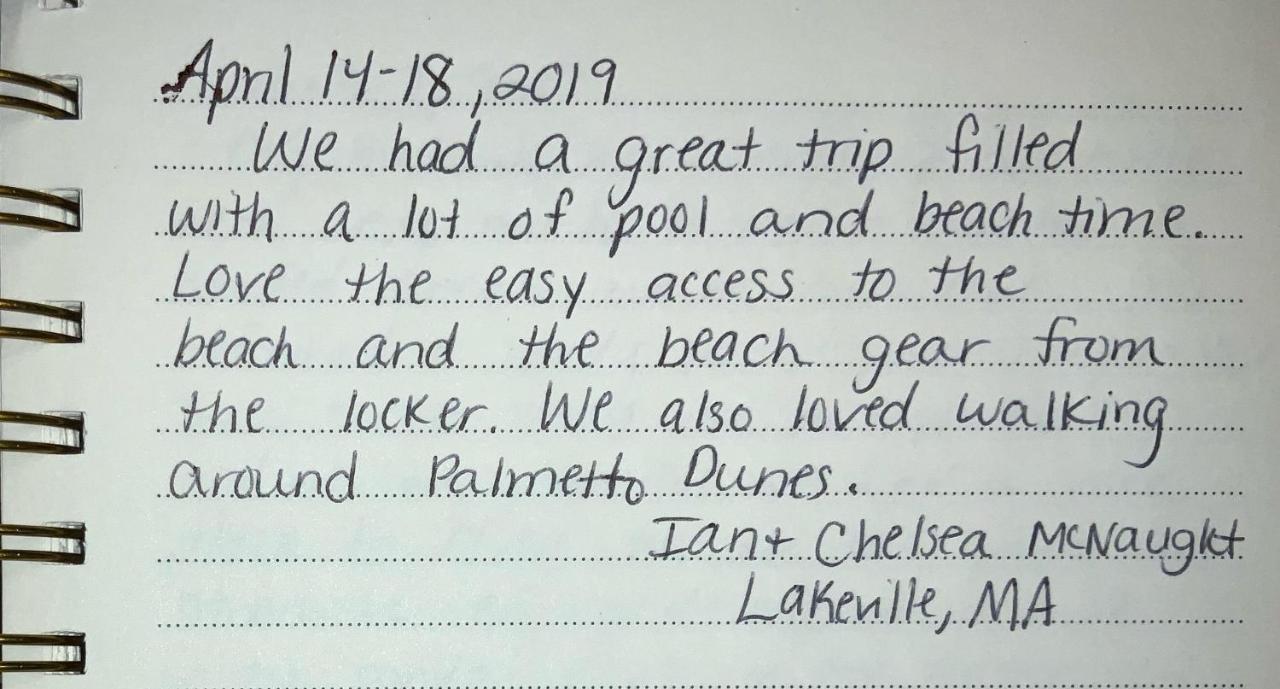 April 14-18, 2019
We had a great trip filled
with a lot of pool and beach time.
Love the easy access to the
beach and the beach gear from
the locker. We also loved walking
around Palmetto Dunes.
Ian + Chelsea McNaught
Lakeville, MA